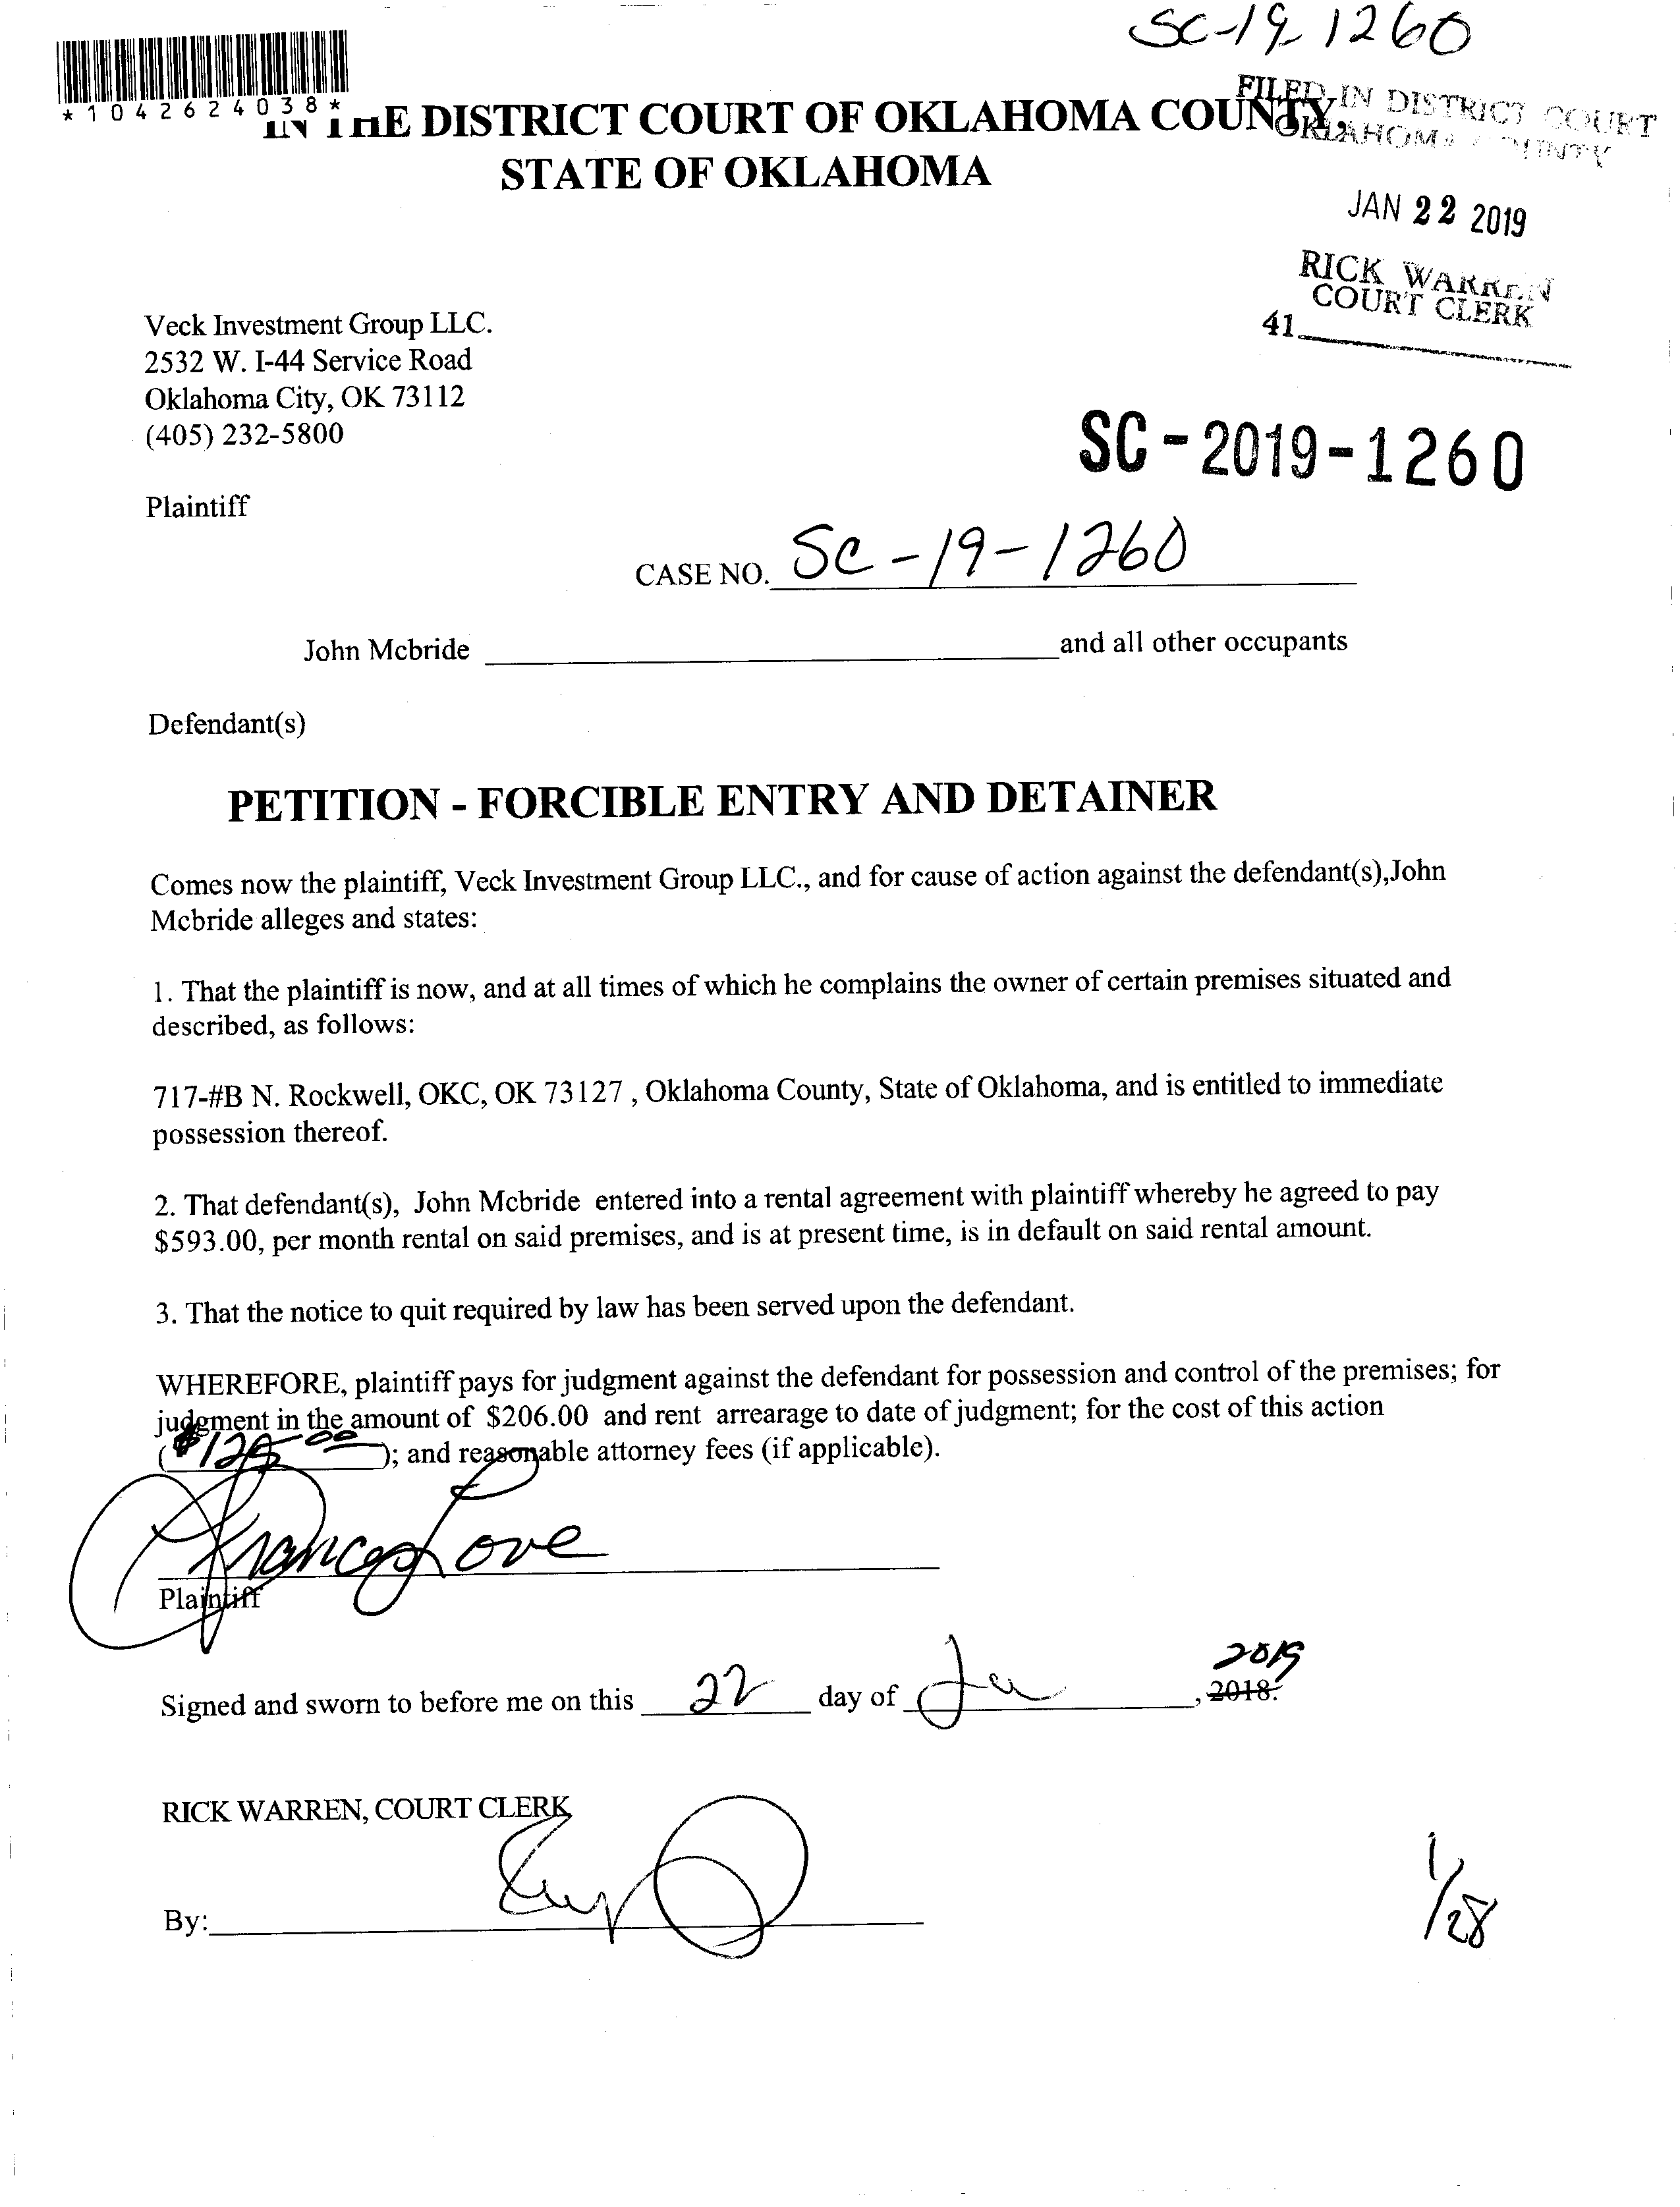 SC-19-1260
*1042624038*
IN THE DISTRICT COURT OF OKLAHOMA COUNTY,
STATE OF OKLAHOMA
FILED IN DISTRICT COURT
OKLAHOMA COUNTY
JAN 22 2019
RICK WARREN
COURT CLERK
41
Veck Investment Group LLC.
2532 W. I-44 Service Road
Oklahoma City, OK 73112
(405) 232-5800
SC-2019-1260
Plaintiff
CASE NO. SC-19-1260
John Mcbride and all other occupants
Defendant(s)
PETITION - FORCIBLE ENTRY AND DETAINER
Comes now the plaintiff, Veck Investment Group LLC., and for cause of action against the defendant(s),John
Mcbride alleges and states:
1. That the plaintiff is now, and at all times of which he complains the owner of certain premises situated and
described, as follows:
717-#B N. Rockwell, OKC, OK 73127 , Oklahoma County, State of Oklahoma, and is entitled to immediate
possession thereof.
2. That defendant(s), John Mcbride entered into a rental agreement with plaintiff whereby he agreed to pay
$593.00, per month rental on said premises, and is at present time, is in default on said rental amount.
3. That the notice to quit required by law has been served upon the defendant.
WHEREFORE, plaintiff pays for judgment against the defendant for possession and control of the premises; for
judgment in the amount of $206.00 and rent arrearage to date of judgment; for the cost of this action
( ); and reasonable attorney fees (if applicable).
Frances Love
Plaintiff
Signed and sworn to before me on this 22 day of , 2019 2018.
RICK WARREN, COURT CLERK
By:
1/28